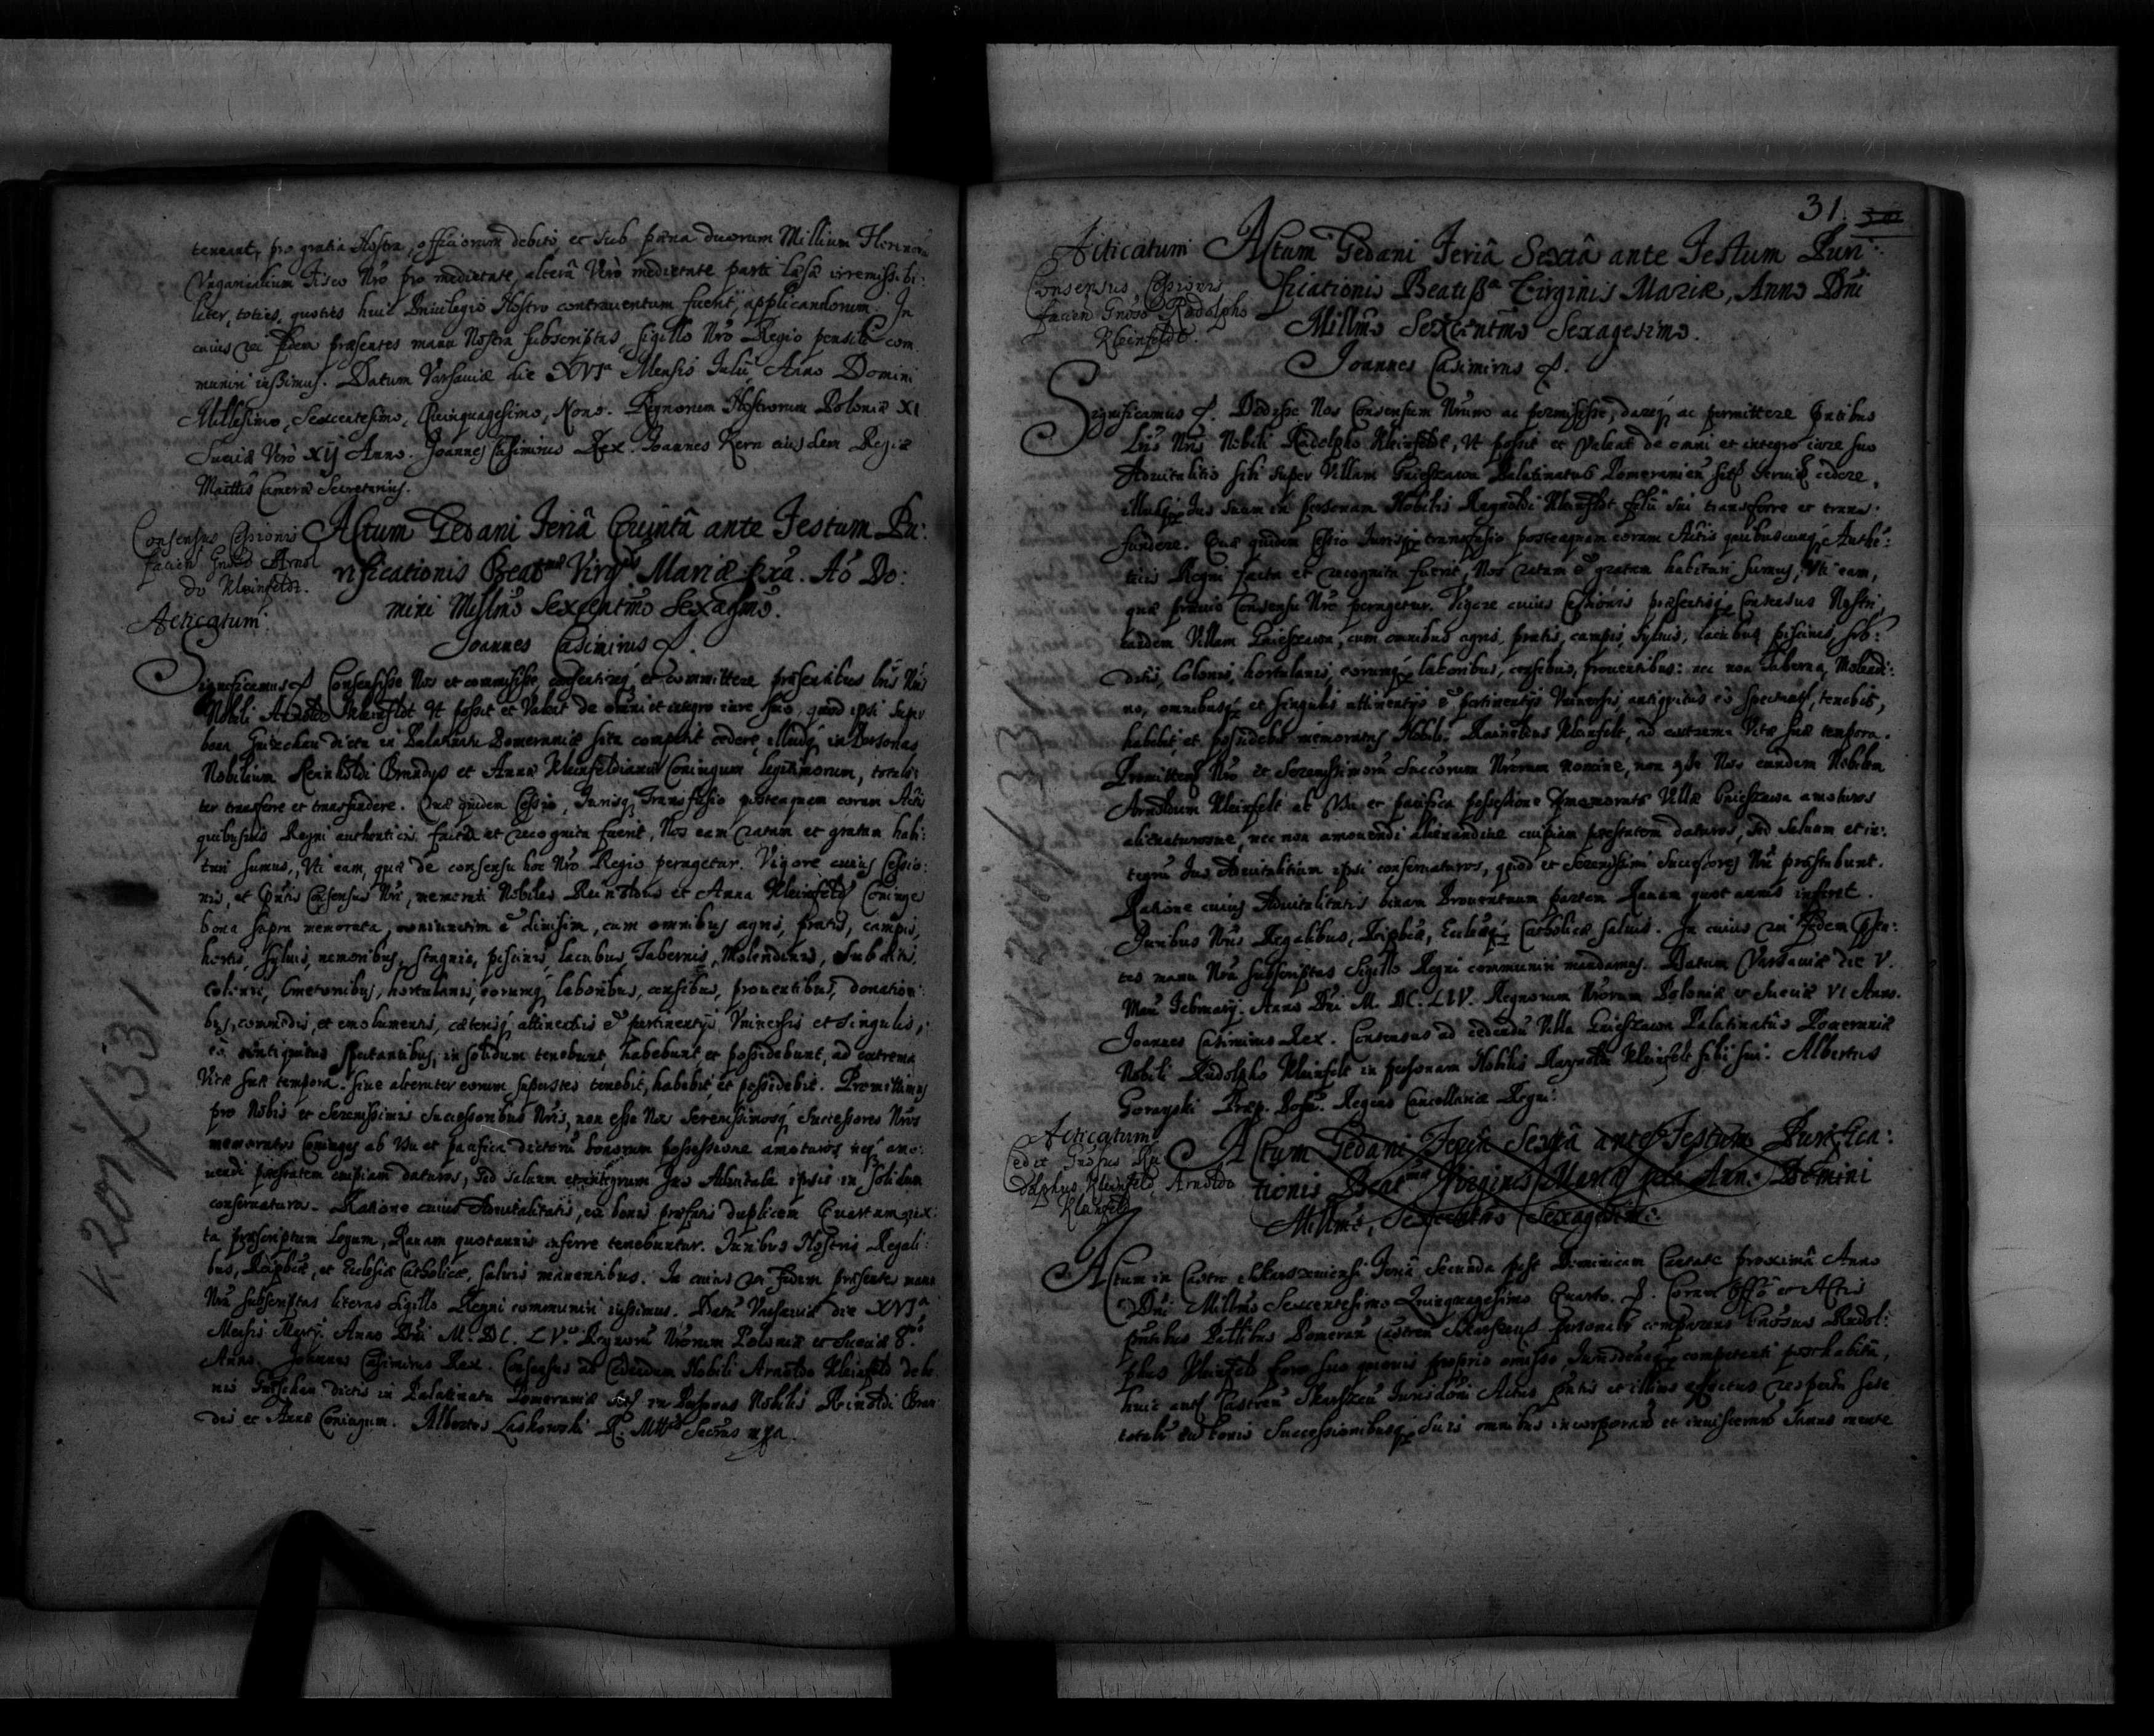 teneant, pro gratia Nostra, officiorum debito, et sub poena duorum Millium Florenorũ
Vngarialium Fisco Nro pro medietate, alterâ Verò medietate parti laesae irremissibi:
liter, toties, quoties huic Priuilegio Nostro contrauentum fuerit, applicandorum. In
cuius rei fidem praesentes manu Nostra subscriptas, Sigillo Nro Regio pensili com
muniri iussimus. Datum Varsauiae die XVIa Mensis Julij Anno Domini
Millesimo, Sexcentesimo, Quinquagesimo, Nono. Regnorum Nostrorum Poloniae XI
Sueciae Verò XIJ Anno. Joannes Casimirus Rex. Joannes Kern eiusdem Regiae
Mattis Camerae Secretarius.
Consensus Cessionis
faciend Groso Arnol
do Kleinfeldt.
Acticatum.
Actum Gedani Feriâ Quintâ ante Festum Pu:
rificationis Beat Virg Mariae pxa. Aõ Do:
mini Millmo Sexcentmo Sexagmo.
Joannes Casimirus &.
Significamus & Consensisse Nos et commisisse, consentireq et committere praesentibus lris Nris
Nobili Arnoldo Kleinfeldt Vt possit et Valeat de omni et integro iure suo, quod ipsi super
bona Guizchau dicta in Palatinatu Pomeraniae sita competit cedere, illudq in Personas
Nobilium Reinholdi Brandys et Annae Kleinfeldianae Coniugum legitimorum, totali:
ter transferre et transfundere. Quae quidem Cessio, Jurisq Transfusio posteaquam coram Actis
quibusuis Regni authenticis facta et recognita fuerit, Nos eam ratam et gratam habi:
turi sumus, Vti eam, quae de consensu hoc Nro Regio peragetur. Vigore cuius Cessio:
nis, et Pntis Consensus Nri, memorati Nobiles Reinoldus et Anna Kleinfeldt Coniuges
bona supra memorata, coniunctim & diuisim, cum omnibus agris, pratis, campis,
hortis, syluis, nemoribus, stagnis, piscinis, lacubus, Tabernis, Molendinis, Subditis,
colonis, Cmetonibus, hortulanis, eorumq laboribus, censibus, prouentibus, donation:
bus, commodis, et emolumentis, caeterisq attinentiis & pertinentijs Vniuersis et singulis,
eo antiquitus spectantibus, in solidum tenebunt, habebunt et possidebunt, ad extrema
Vitae suae tempora. Siue alteruter eorum superstes tenebit, habebit, et possidebit. Promittimus
pro Nobis et Serenissimis Successoribus Nris, non esse Nos Serenissimosq Successores Nros
memoratos Coniuges ab Vsu et pacifica dictorũ bonorum possessione amoturos neq amo:
uendi potestatem cuipiam daturos, sed saluum et integrum Jus Aduitale ipsis in solidum
conseruaturos. Ratione cuius Aduitalitatis, ex bonis praefatis duplicem Quartam iux:
ta praescriptum Legum, Rauam quotannis inferre tenebuntur. Juribus Nostris Regali:
bus, Reipbcae, et Ecclesiae Catholicae, saluis manentibus. In cuius rei fidem praesentes manu
Nrâ subscriptas literas Sigillo Regni communiri iussimus. Datũ Varsauiae die XVIa
Mensis Martij. Anno Dni M. DC. LVo. Regnorũ Nrorum Poloniae et Sueciae 8o
Anno. Johannes Casimirus Rex. Consensus ad Cedendum Nobili Arnoldo Kleinfeldt de bo
nis Gutschau dictis in Palatinatu Pomeraniae sitis in Personas Nobilis Reinoldi Bran
dis et Annae Coniugum. Albertus Laskowski R. Mttis Secrius mpa.
K 201/331
31.
Acticatum
Consensus Cessionis
facien Groso Rodolpho
Kleinfeldt.
Actum Gedani Feriâ Sextâ ante Festum Puri:
ficationis Beatissa Virginis Mariae, Anno Dni
Millmo Sexcentmo Sexagesimo.
Joannes Casimirus &.
Significamus &. Dedisse Nos Consensum Nrum ac permisisse, dareq ac permittere Pntibus
Lris Nris Nobili Rudolpho Kleinfeldt, Vt possit et Valeat de omni et integro iure suo
Aduitalitio sibi super Villam Gnieszewa Palatinatus Pomeranien sitã seruien cedere,
illudq Jus suum in personam Nobilis Raynoldi Kleinfeldt filij sui transferre et trans:
fundere. Quae quidem Cessio Jurisq transfusio posteaquam coram Actis quibuscunq Authē:
ticis Regni facta et recognita fuerit, Nos ratam & gratam habituri sumus, Vti eam,
quae praeuio Consensu Nro peragetur. Vigore cuius Cessionis praesentisq Consensus Nostri,
eandem Villam Gnieszewa, cum omnibus agris, pratis, campis, syluis, lacubus, piscinis, sub:
ditis, colonis, hortulanis, eorumq laboribus, censibus, prouentibus: nec non Taberna, Molendi:
no, omnibusq et singulis attinentijs & pertinentijs Vniuersis, antiquitus eò spectantibus, tenebit,
habebit et possidebit memoratus Nobilis Rainoldus Kleinfelt, ad extrema Vitae suae tempora.
Promittens Nro et Serenissimorũ Succorum Nrorum nomine, non qde Nos eundem Nobilem
Arnoldum Kleinfelt ab Vsu et pacifica possessione memoratae Villae Gnieszewa amoturos
alienaturosue, nec non amouendi alienandiue cuipiam potestatem daturos, sed saluum et in:
tegrũ Jus Aduitalitium ipsi conseruaturos, quod et Serenissimi Successores Nri praestabunt.
Ratione cuius Aduitalitatis binam Prouentuum partem Rauam quot annis inferet.
Juribus Nris Regalibus, Reipbcae, Ecclaeq Catholicae saluis. In cuius rei fidem Psen:
tes manu Nrâ subscriptas Sigillo Regni communiri mandamus. Datum Varsauiae die V.
Mens Februarij. Anno Dni M. DC. LIV. Regnorum Nrorum Poloniae et Sueciae VI Anno.
Joannes Casimirus Rex. Consensus ad cedendũ Villa Gnieszewa Palatinatus Pomeraniae
Nobili Rudolpho Kleinfelt in personam Nobilis Raynoldi Kleinfelt filij sui. Albertus
Gorayski Regens Cancellariae Regni.
Acticatum
Cedit Grosus Ru
dolphus Kleinfeld Arnoldo
Kleinfeld
Actum Gedani Feriâ Sextâ ante Festum Purifica:
tionis Beat Virginis Mariae pxa Anno Domini
Millmo, Sexcentmo Sexagesimo.
Actum in Castro Skarszeuiensi Feriâ Secunda post Dominicam Cantate proximâ Anno
Dni Millmo Sexcentesimo Quinquagesimo Quarto. &. Coram Officio et Actis
pntibus Pallibus Pomeran Castren Skarszeu personaliter comparens Grosus Rudol:
phus Kleinfelt foro suo quouis proprio omisso, Jurisdneq competenti posthabita,
huic autẽ Castren Skarszeu Jurisdoni Actus Pntis et illius effectus respectu sese
totaliter cum bonis Successionibusq suis omnibus incorporans et inuiscerans Sanus mente
K 201/331